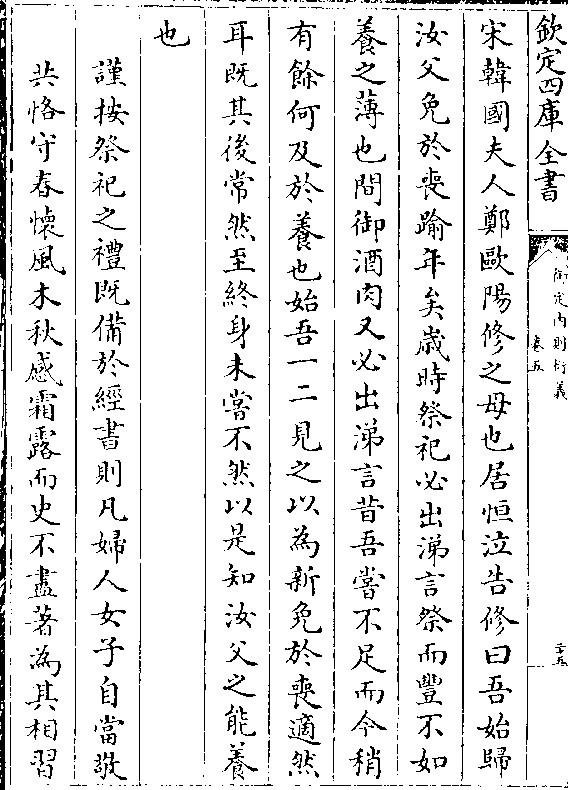 欽定四庫全書
御定內則衍義
卷五
二十五
宋韓國夫人鄭歐陽修之母也居恒泣告修曰吾始歸
汝父免於喪踰年矣歲時祭祀必出涕言祭而豐不如
養之薄也間御酒肉又必出涕言昔吾嘗不足而今稍
有餘何及於養也始吾一二見之以為新免於喪適然
耳既其後常然至終身未嘗不然以是知汝父之能養
也
謹按祭祀之禮既備於經書則凡婦人女子自當敬
共恪守春懷風木秋感霜露而史不盡著為其相習